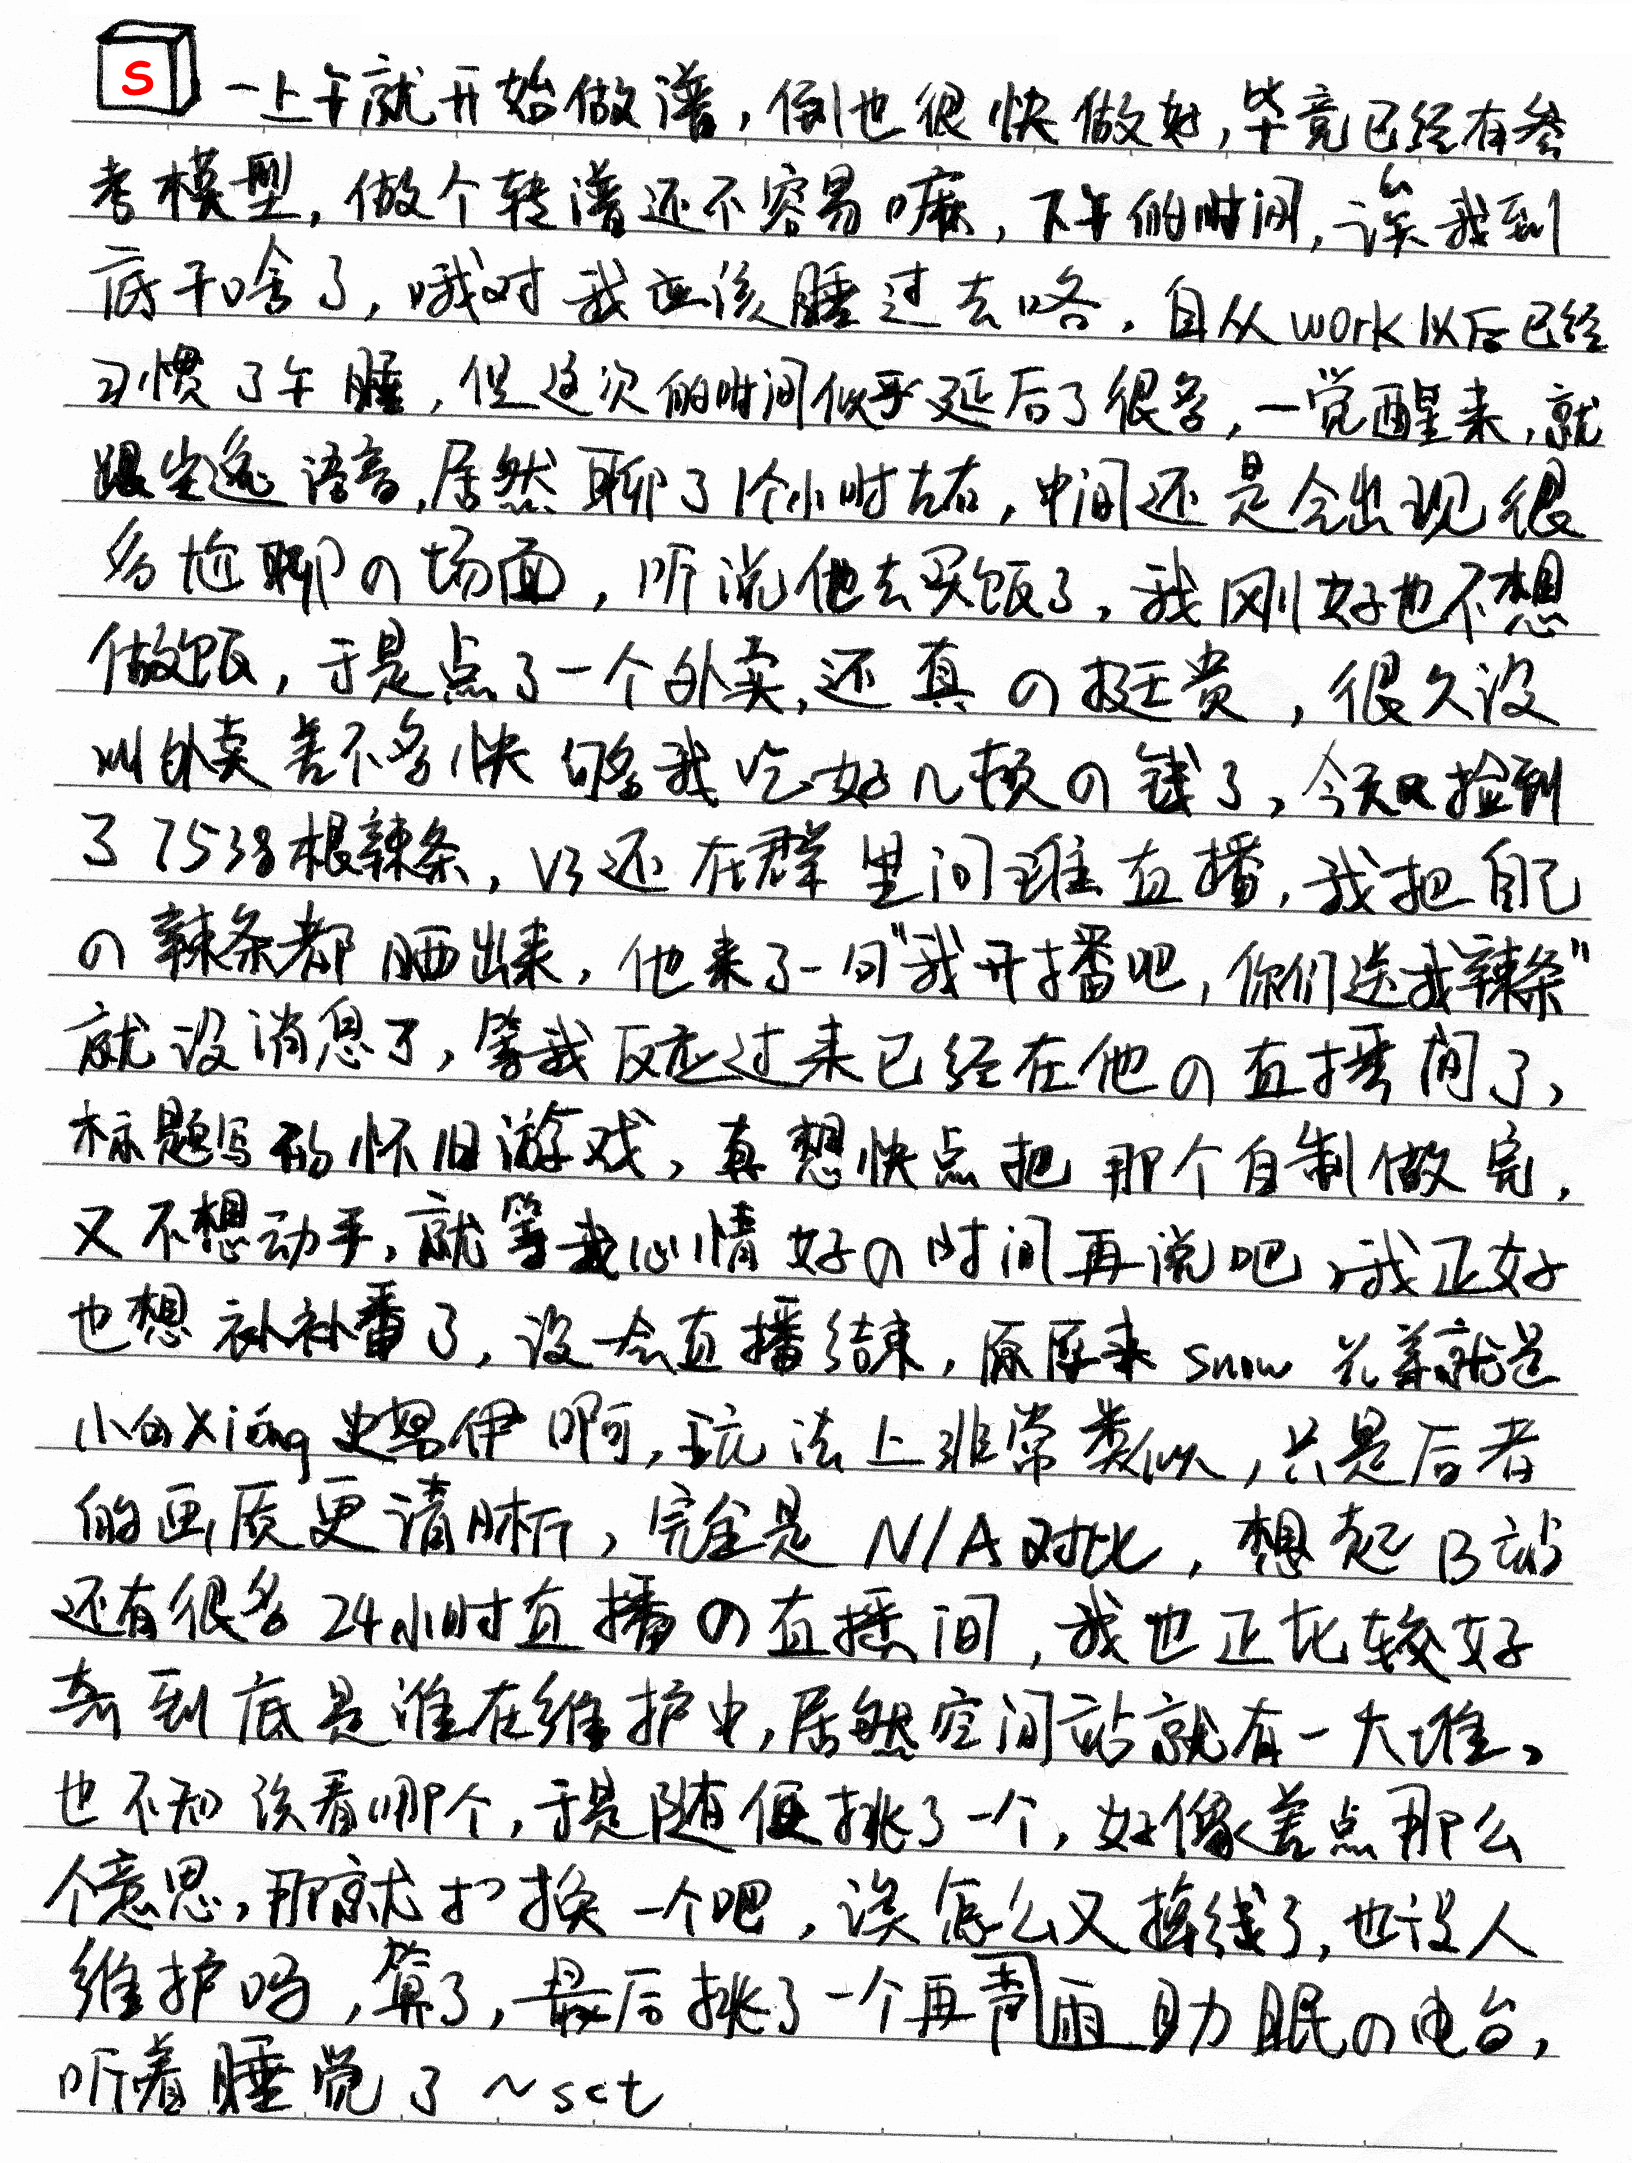 S 一上午就开始做谱，倒也很快做好，毕竟已经有参
考模型，做个转谱还不容易嘛，下午的时间，诶我到
底干啥了，哦对我应该睡过去咯，自从work以后已经
习惯了午睡，但这次的时间似乎延后了很多，一觉醒来，就
跟尘逸语音，居然聊了1个小时左右，中间还是会出现很
多尬聊の场面，听说他去买饭了，我刚好也不想
做饭，于是点了一个外卖，还真の挺贵，很久没
叫外卖差不多快够我吃好几顿の钱了，今天又捡到
了7538根辣条，V3还在群里问谁直播，我把自己
の辣条都晒出来，他来了一句"我开播吧，你们送我辣条"
就没消息了，等我反应过来已经在他の直播间了，
标题写的怀旧游戏，真想快点把那个自制做完，
又不想动手，就等我心情好の时间再说吧，我正好
也想补补番了，没一会直播结束，原来snow 就是
小白xiong史努伊啊，玩法上非常类似，只是后者
的画质更清晰，完全是N/A对比，想起B站
还有很多24小时直播の直播间，我也正比较好
奇到底是谁在维护中，居然空间站就有一大堆。
也不知该看哪个，于是随便挑了一个，好像差点那么
个意思，那就换一个吧，诶怎么又掉线了，也没人
维护吗，算了，最后挑了一个再声雨助眠の电台，
听着睡觉了～sct